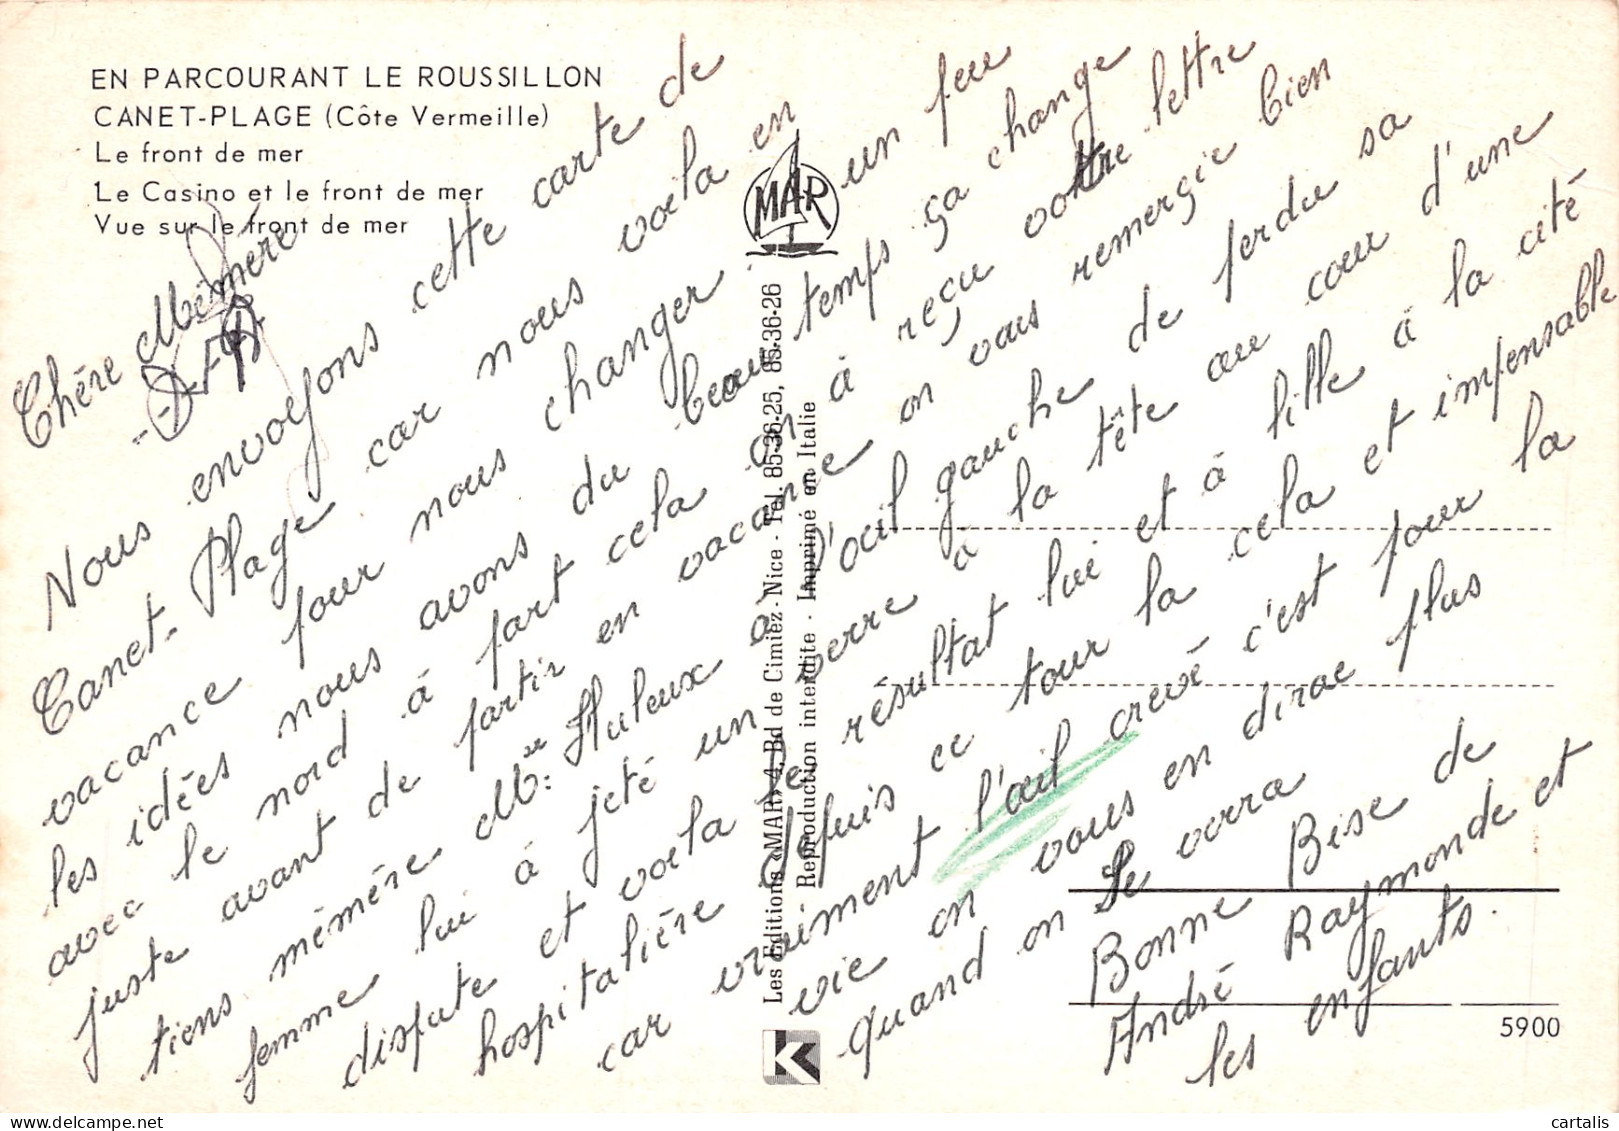 EN PARCOURANT LE ROUSSILLON
CANET-PLAGE (Côte Vermeille)
Le front de mer
Le Casino et le front de mer
Vue sur le front de mer
Chére Mémére
Nous envoyons cette carte de
Canet-Plage car nous voila en
vacance pour nous changer un peu
les idées nous avons du beau temps ça change
avec le nord à part cela on à reçu votre lettre
juste avant de partir en vacance on vous remergie bien
tiens mémére Mr Huleux à l'oeil gauche de perdu sa
femme lui à jeté un verre à la tête au cour d'une
dispute et voila le résultat lui et à lille à la cité
hospitalière depuis ce tour la cela et impensable
car vraiment l'œil crevé c'est pour la
vie on vous en dirac plus
quand on Se verra
Bonne Bise de
André Raymonde et
les enfants.
MAR
Les Editions «MAR» 4, Bd de Cimiez - Nice - Tél. 85-36-25, 85-36-26
Reproduction interdite - Imprimé en Italie
K
5900
cartalis